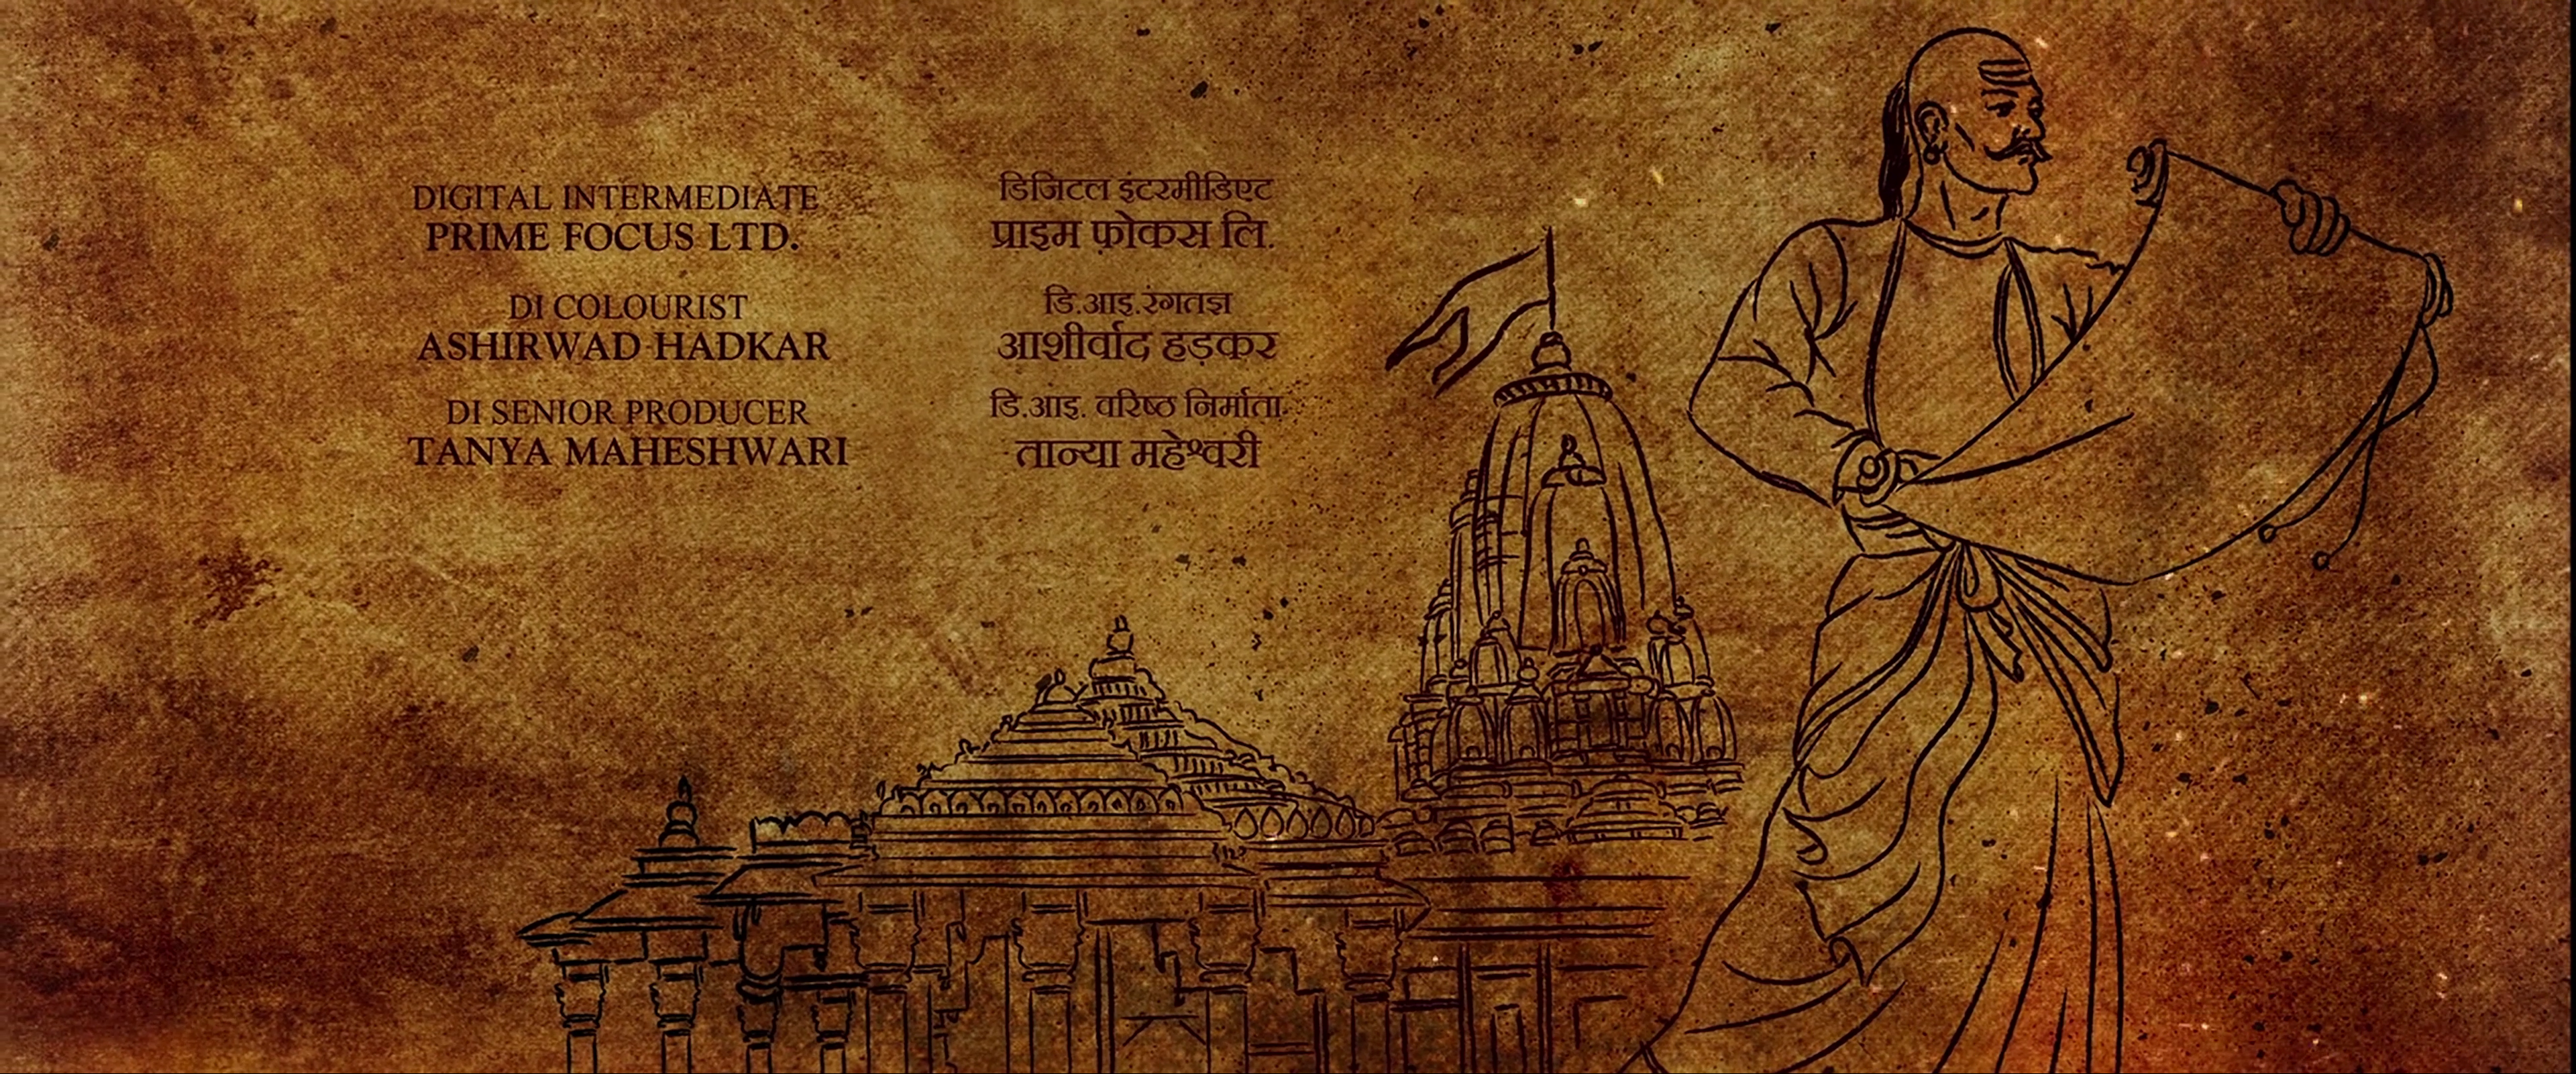 DIGITAL INTERMEDIATE
PRIME FOCUS LTD.
DI COLOURIST
ASHIRWAD HADKAR
DI SENIOR PRODUCER
TANYA MAHESHWARI
डिजिटल इंटरमीडिएट
प्राइम फ़ोकस लि.
डि.आइ.रंगतज्ञ
आशीर्वाद हड़कर
डि.आइ. वरिष्ठ निर्माता
तान्या महेश्वरी